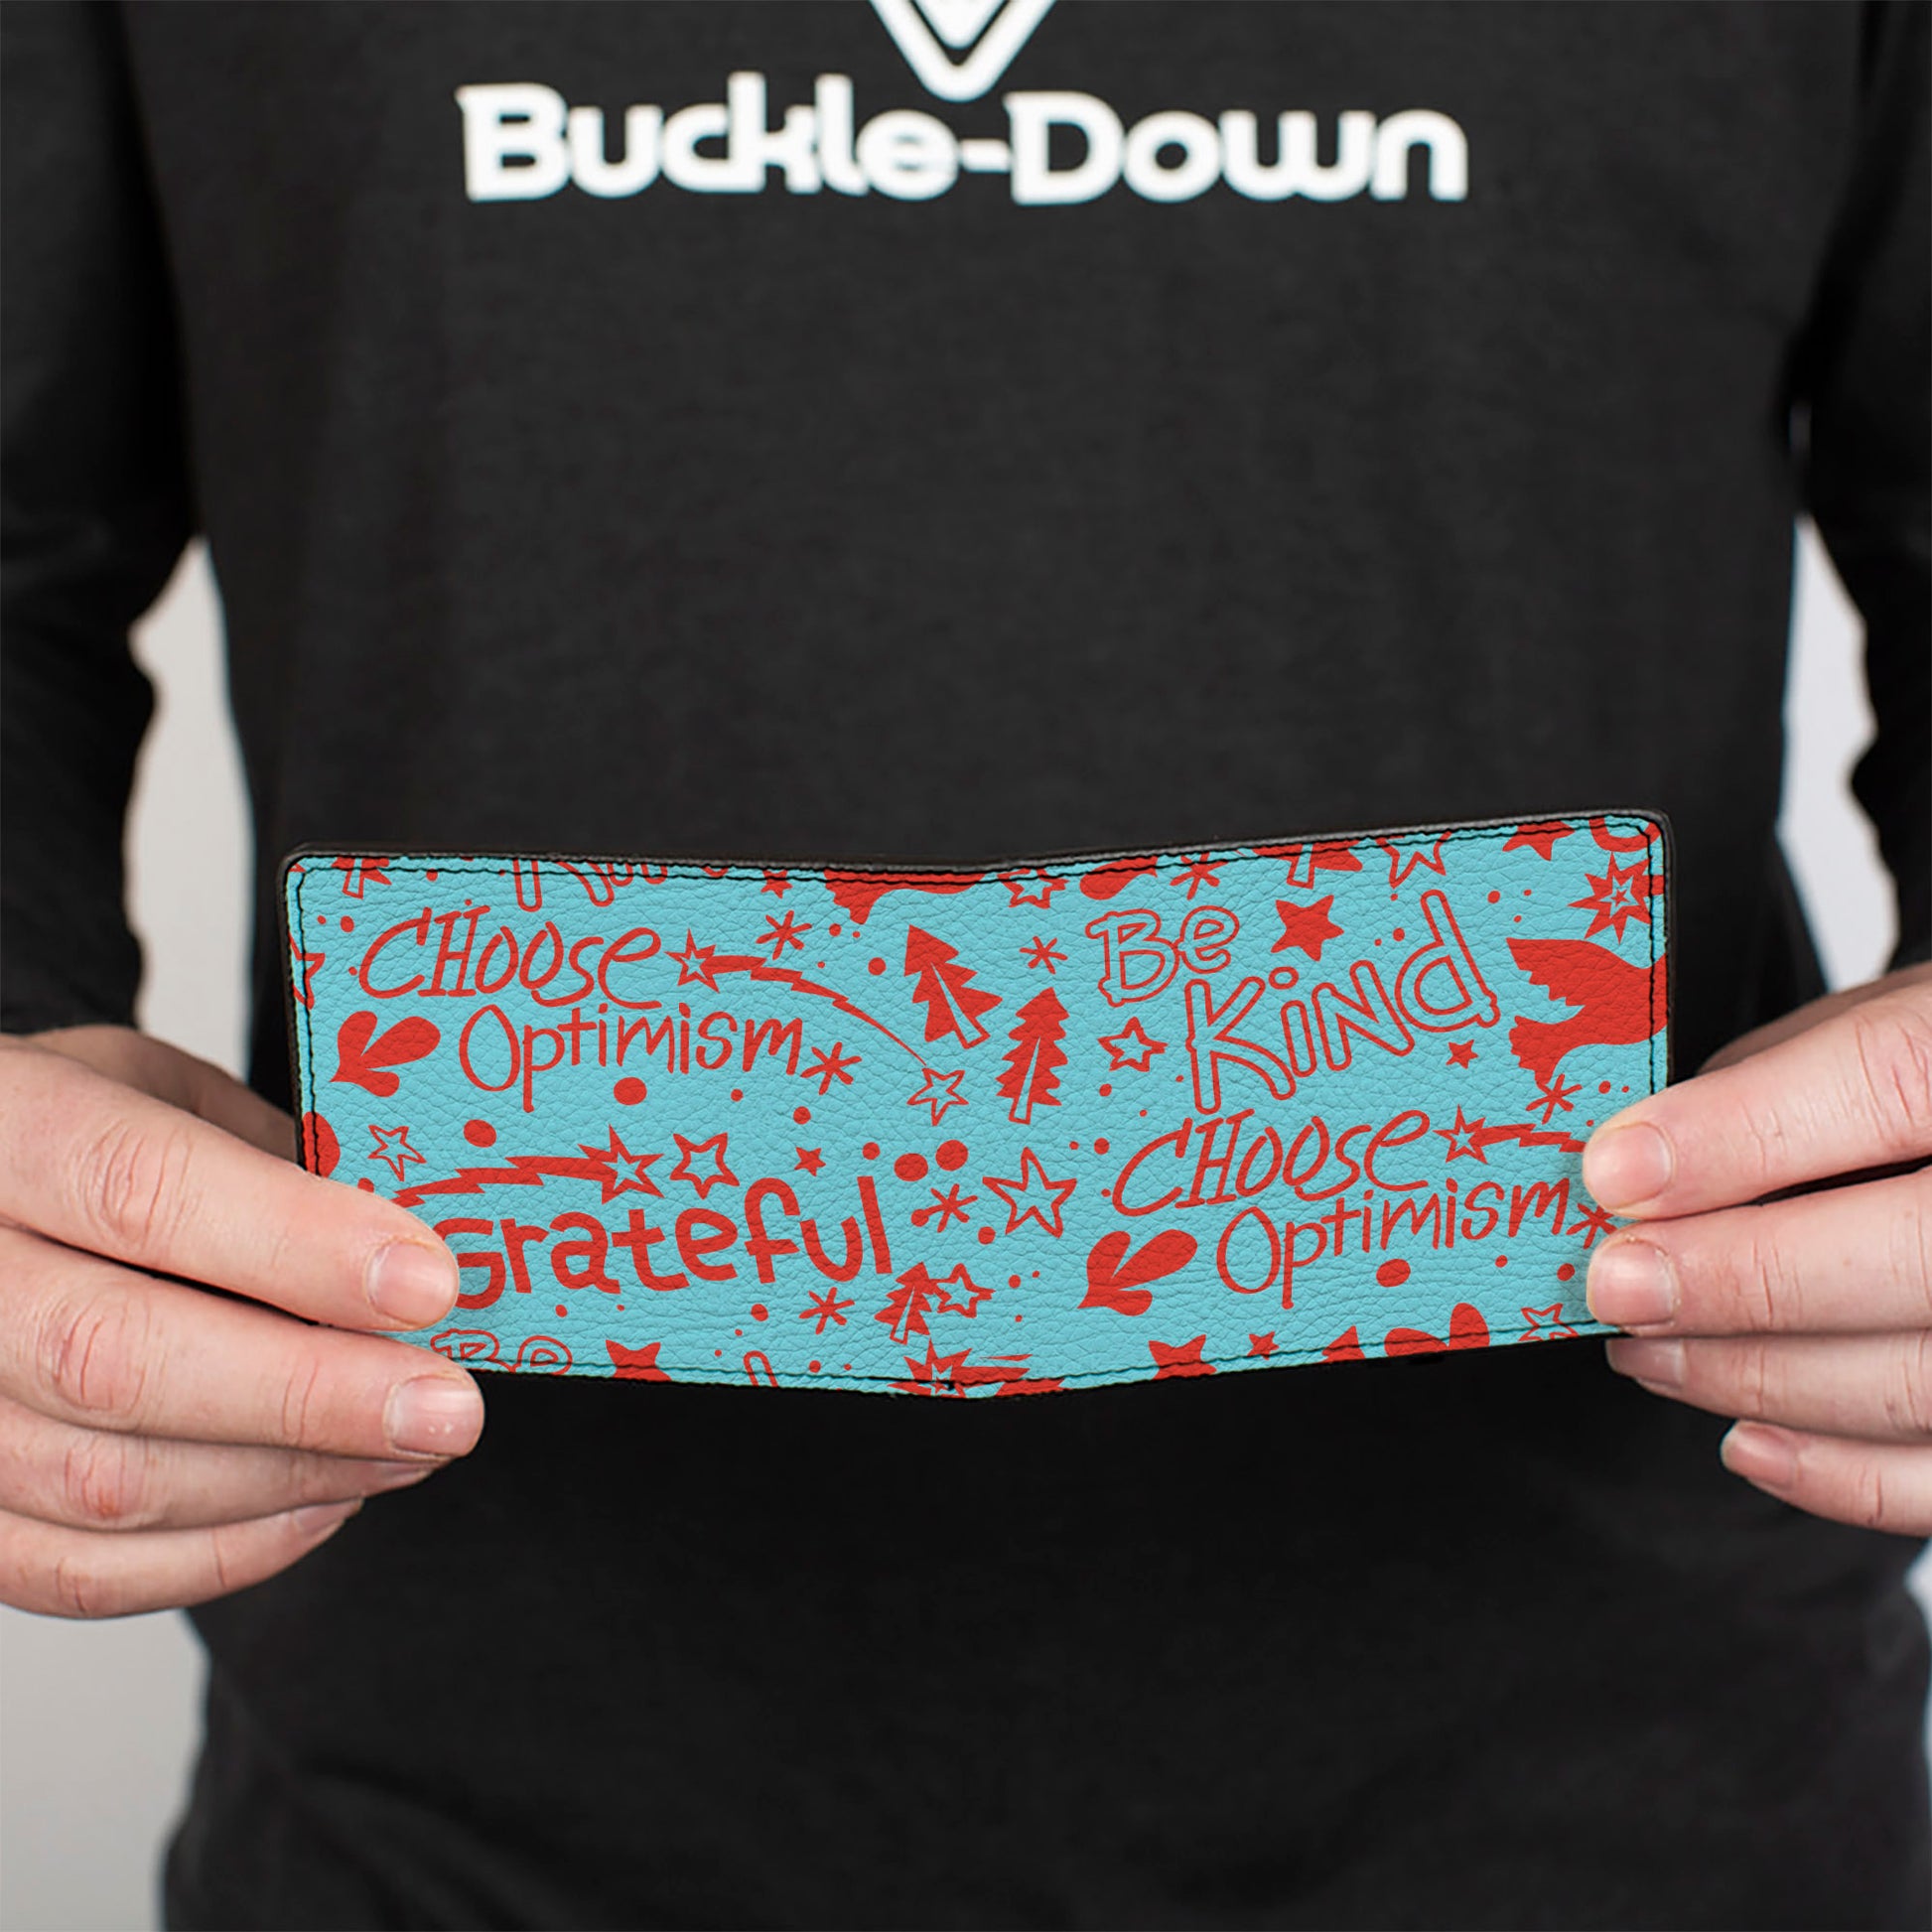 Buckle-Down
CHoose
Optimism
Grateful
Be
Kind
CHoose
Optimism
Be